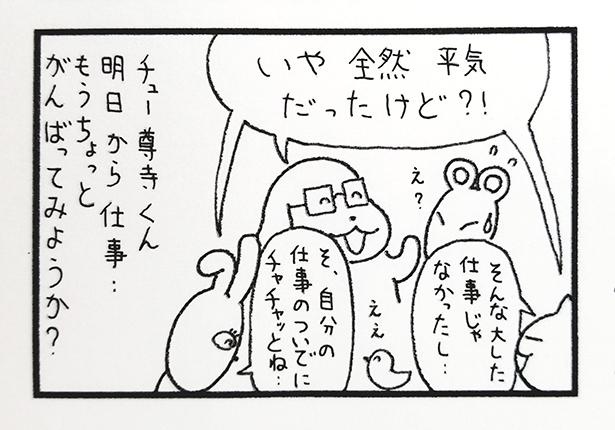 いや 全然 平気
だったけど?!
え?
そんな大した
仕事じゃ
なかったし…
そ、自分の
仕事のついでに
チャチャッとね…
ええ
チュー尊寺くん
明日から仕事…
もうちょっと
がんばってみようか?